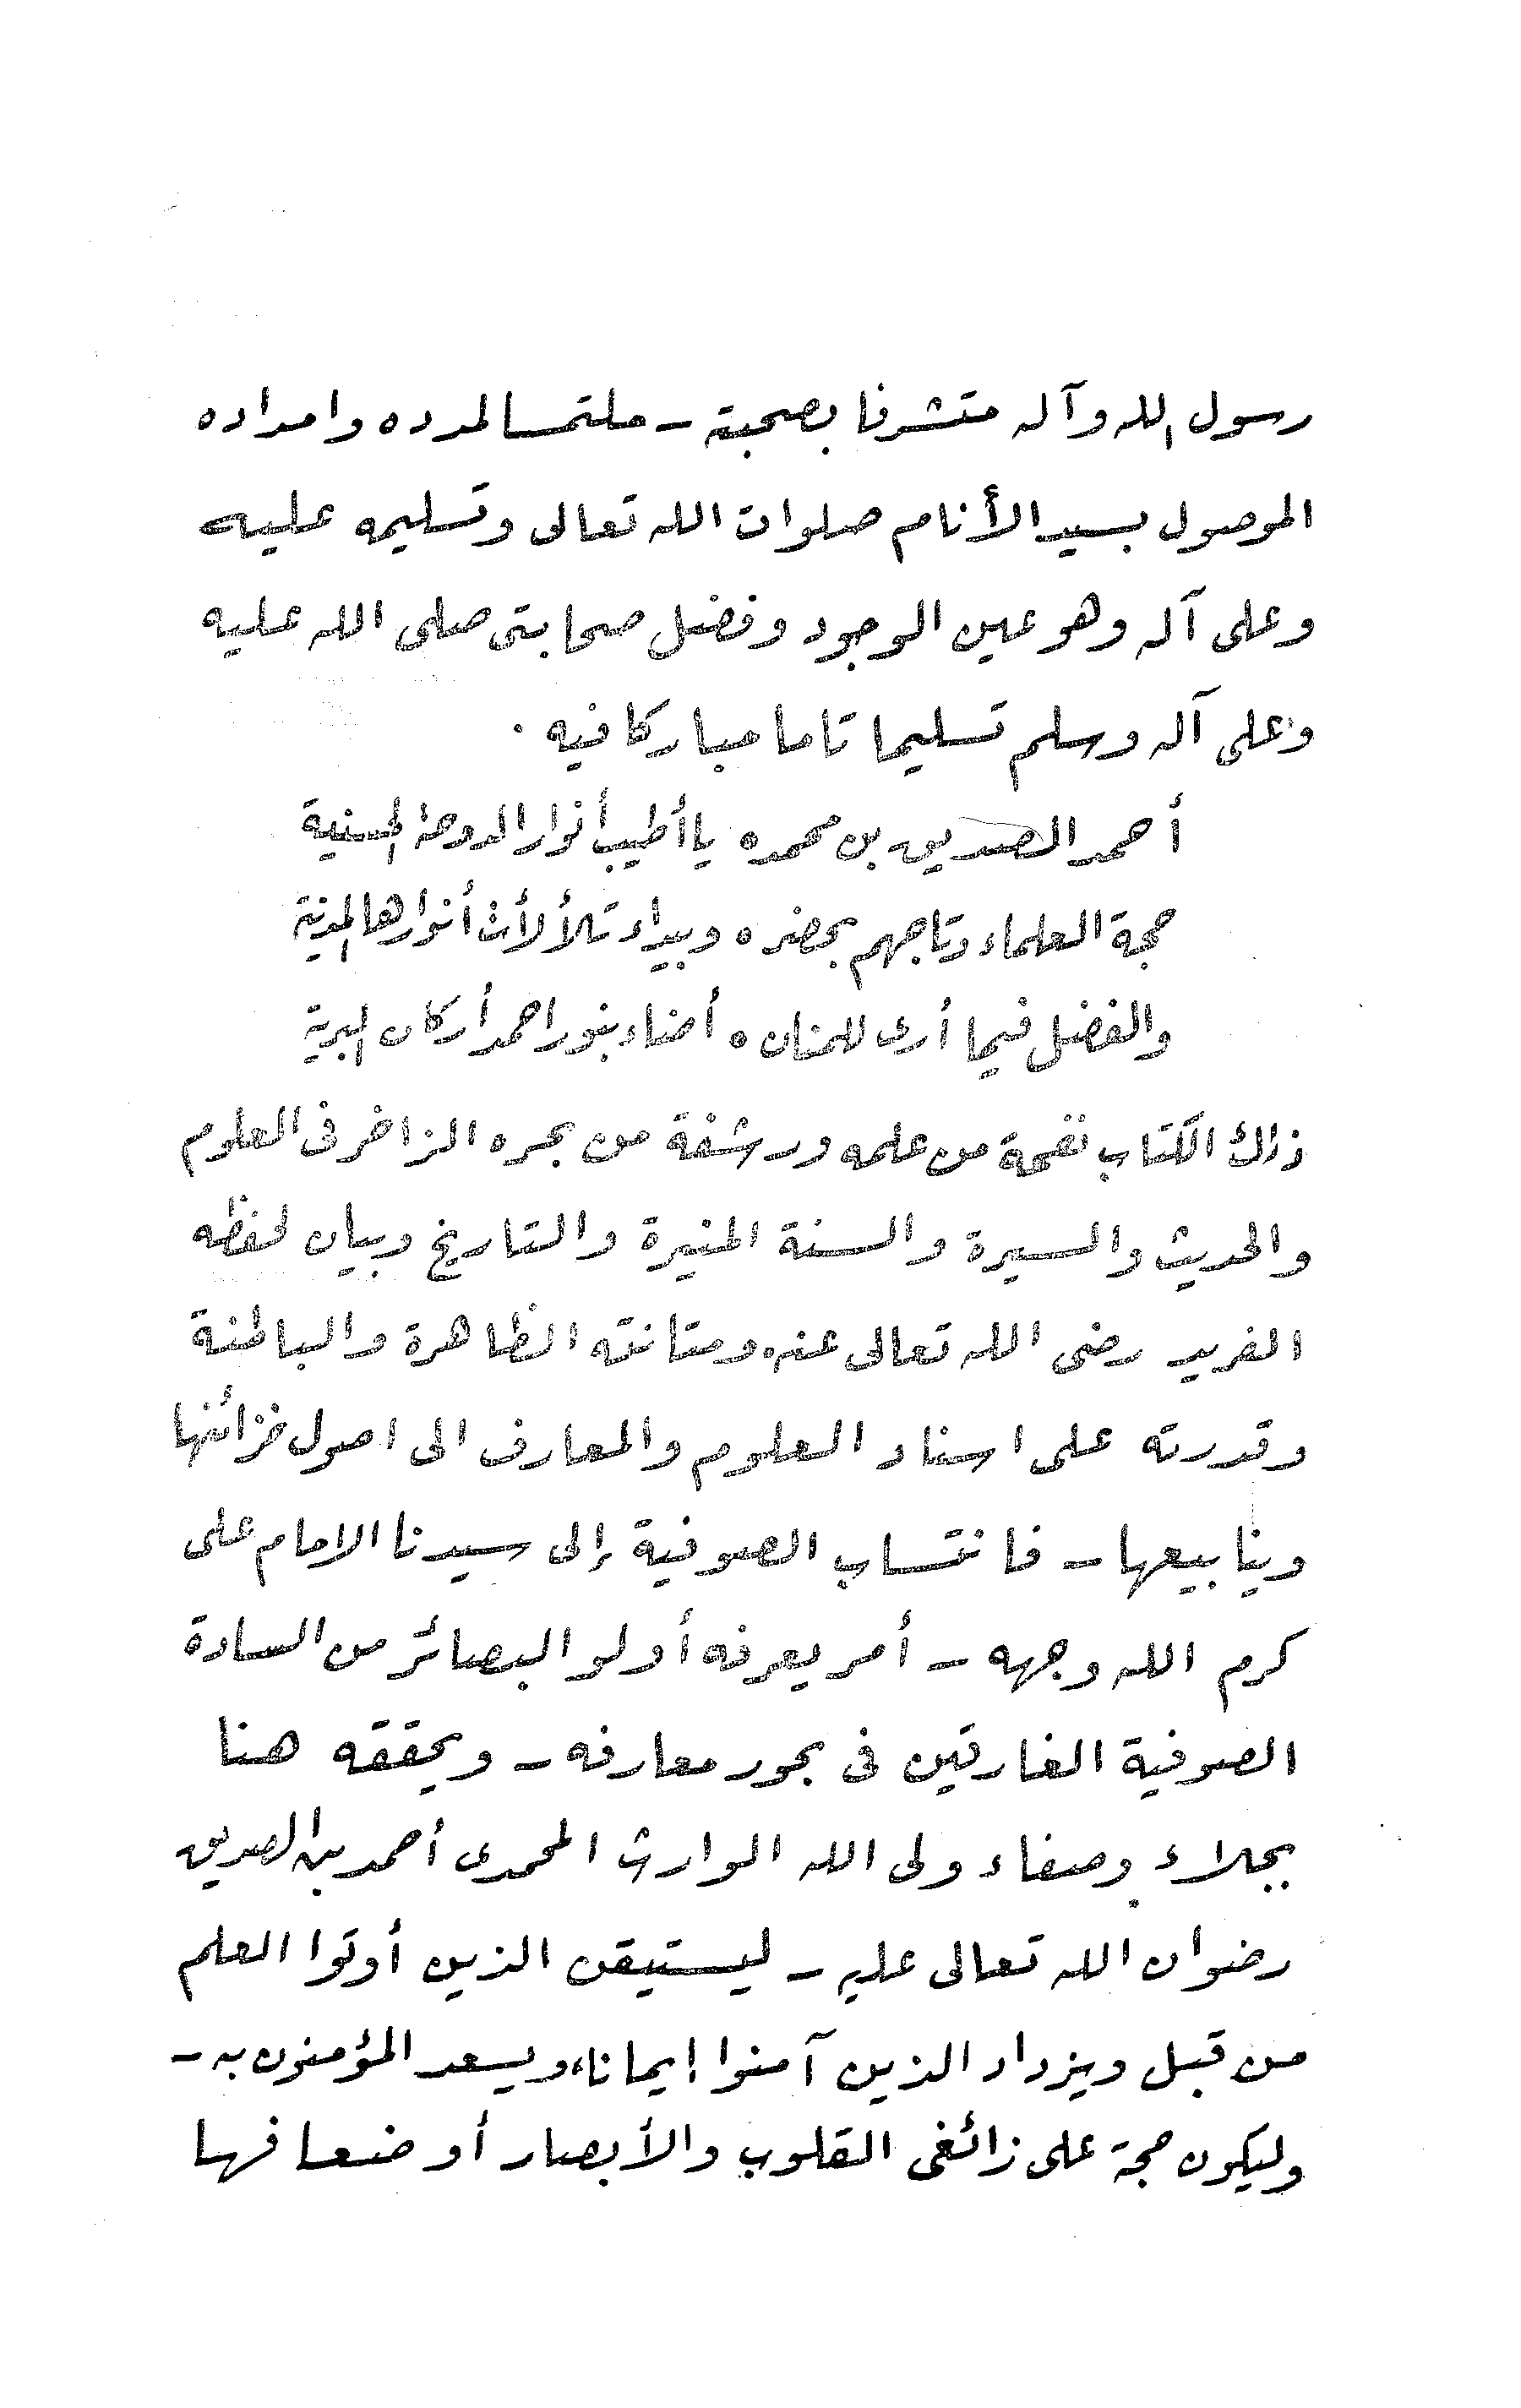 رسول الله وآله متشرفا بصحبته - ملتمسا لمدده وامداده
الموصول بسيد الأنام صلوات الله تعالى وتسليمه عليه
وعلى آله وهو عين الوجود وفضل صحابتى صلى الله عليه
وعلى آله وسلم تسليما تاما مباركا فيه .
أحمد الصديق بن محمده يا أطيب أنوار الدوحة الحسنية
حجة العلماء وتاجهم بحضره وبيداء تلألأت أنوارها المدنية
والفضل فيما أرى للمنان ه أضاء بنور احمد أركان البرية
ذاك الكتاب نفحة من علمه ورشفة من بحره الزاخر فى العلوم
والحديث والسيرة والسنة المنيرة والتاريخ وبيان لحفظه
الفريد رضى الله تعالى عنه. ومتانته الظاهرة والباطنة
وقدرته على اسناد العلوم والمعارف الى اصول خزائنها
وينابيعها - فانتساب الصوفية إلى سيدنا الامام على
كرم الله وجهه - أمر يعرفه أولو البصائر من السادة
الصوفية الغارقين فى بحور معارفه - ويحققه هنا
بجلاء وصفاء ولى الله الوارث المحمدى أحمد بن الصديق
رضوان الله تعالى عليه - ليستيقن الذين أوتوا العلم
من قبل ويزداد الذين آمنوا إيمانا، ويسعد المؤمنون به -
وليكون حجة على زائغى القلوب والأبصار أو ضعافها